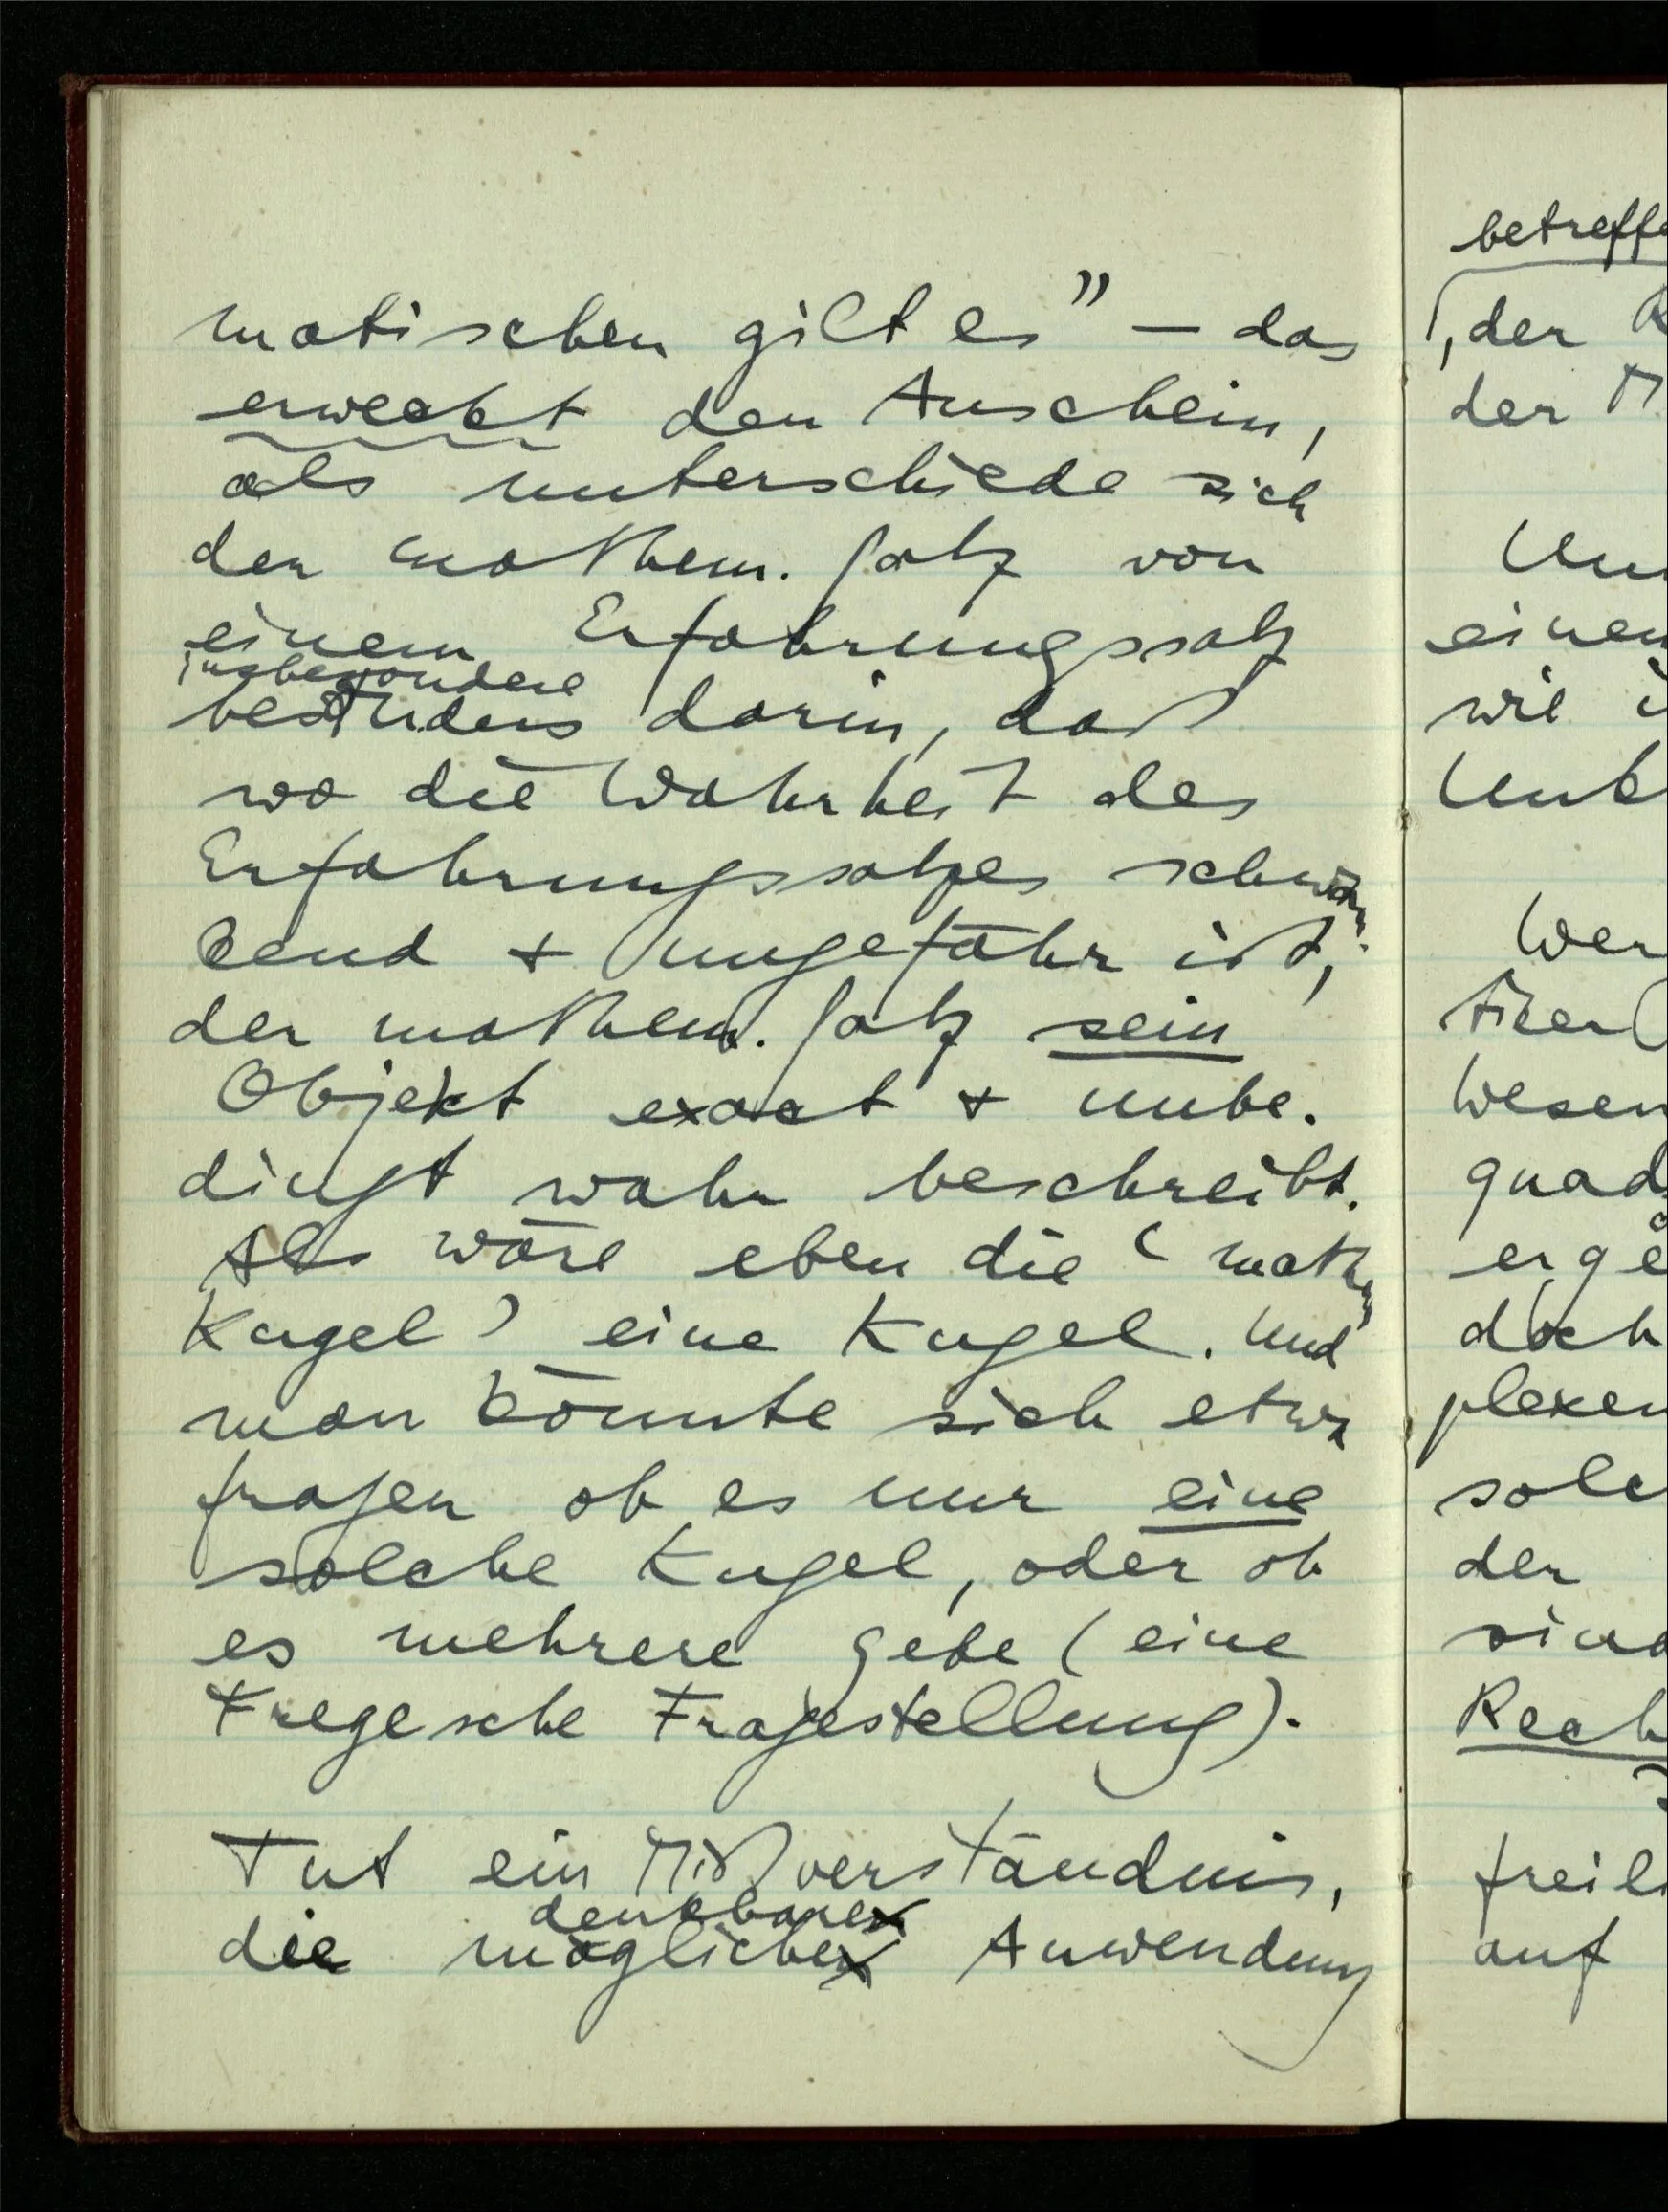 matischen gilt es” — das
erweckt den Anschein,
als unterschiede sich
der mathem. Satz von
einem Erfahrungssatz
insbesondere
besonders darin, daß
wo die Wahrheit des
Erfahrungssatzes schwan-
kend + ungefähr ist,
der mathem. Satz sein
Objekt exact + unbe-
dingt wahr beschreibt.
Als wäre eben die ‘math.
Kugel’ eine Kugel. Und
man könnte sich etwa
fragen ob es nur eine
solche Kugel, oder ob
es mehrere gebe (eine
Fregesche Fragestellung).
Tut ein Mißverständnis,
denkbare
die mögliche Anwendung
betreffe
, der
der M
Un
einem
wie
Unk
Wer
tiker
Wesen
quad
erge
doch
plexen
solc
der
sind
Rech
freili
auf